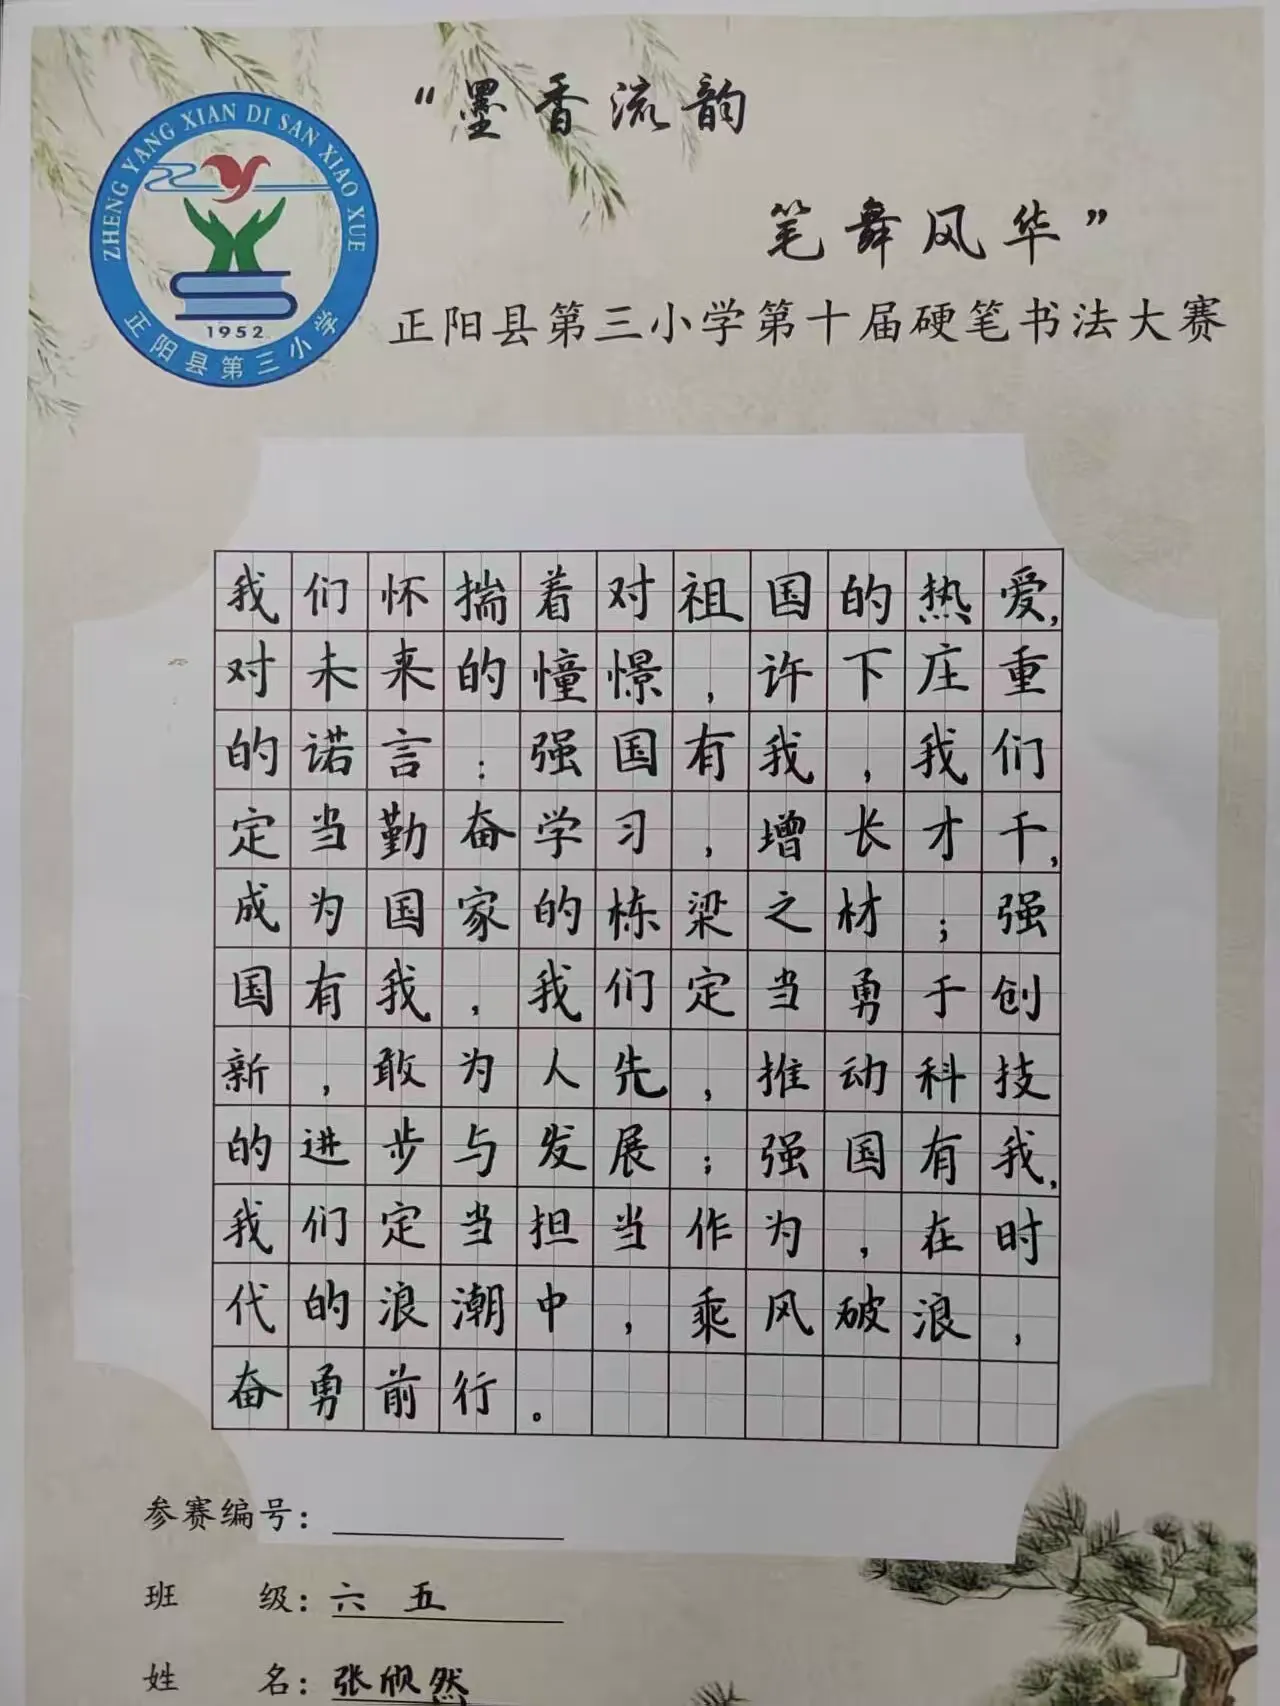 “墨香流韵
笔舞风华”
ZHENG YANG XIAN DI SAN XIAO XUE
1952
正阳县第三小学
正阳县第三小学第十届硬笔书法大赛
我们怀揣着对祖国的热爱,
对未来的憧憬，许下庄重
的诺言：强国有我，我们
定当勤奋学习，增长才干,
成为国家的栋梁之材；强
国有我，我们定当勇于创
新，敢为人先，推动科技
的进步与发展；强国有我,
我们定当担当作为，在时
代的浪潮中，乘风破浪，
奋勇前行。
参赛编号：
班 级：六 五
姓 名：张欣然